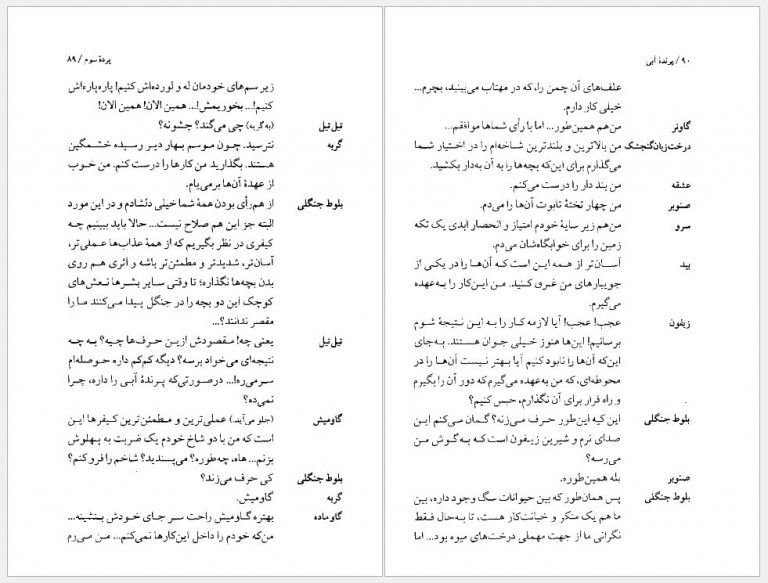 پردهٔ سوم / ۸۹
زیر سم‌های خودمان له و لورده‌اش کنیم! پاره‌پاره‌اش
کنیم!... بخوریمش!... همین الان! همین الان!
تیل‌تیل (به گربه) چی می‌گند؟ چشونه؟
گربه نترسید. چون موسم بهار دیر رسیده خشمگین
هستند. بگذارید من کارها را درست کنم. من خوب
از عهدهٔ آن‌ها برمی‌یام.
بلوط جنگلی از هم‌رأی بودن همهٔ شما خیلی دلشادم و در این مورد
البته جز این هم صلاح نیست... حالا باید ببینیم چه
کیفری در نظر بگیریم که از همهٔ عذاب‌ها عملی‌تر،
آسان‌تر، شدیدتر و مطمئن‌تر باشه و اثری هم روی
بدن بچه‌ها نگذاره؛ تا وقتی سایر بشرها نعش‌های
کوچک این دو بچه را در جنگل پیدا می‌کنند ما را
مقصر ندانند؟...
تیل‌تیل یعنی چه! مقصودش ازین حرف‌ها چیه؟ به چه
نتیجه‌ای می‌خواد برسه؟ دیگه کم‌کم داره حوصله‌ام
سرمی‌ره!... درصورتی‌که پرندهٔ آبی را داره، چرا
نمی‌ده؟
گاومیش (جلو می‌آید.) عملی‌ترین و مطمئن‌ترین کیفرها این
است که من با دو شاخ خودم یک ضربت به پهلوش
بزنم... هاه، چه‌طوره؟ می‌پسندید؟ شاخم را فرو کنم؟
بلوط جنگلی کی حرف می‌زند؟
گربه گاومیش.
گاو ماده بهتره گاومیش راحت سر جای خودش بنشینه...
من‌که خودم را داخل این‌کارها نمی‌کنم... من سی‌رم
۹۰ / پرندهٔ آبی
علف‌های آن چمن را، که در مهتاب می‌بینید، بچرم...
خیلی کار دارم.
گاونر من‌هم همین‌طور... اما با رأی شماها موافقم...
درخت‌زبان‌گنجشک من بالاترین و بلندترین شاخه‌ام را در اختیار شما
می‌گذارم برای این‌که بچه‌ها را به آن به‌دار بکشید.
عشقه من بند دار را درست می‌کنم.
صنوبر من چهار تختهٔ تابوت آن‌ها را می‌دم.
سرو من‌هم زیر سایهٔ خودم امتیاز و انحصار ابدی یک تکه
زمین را برای خوابگاه‌شان می‌دم.
بید آسان‌تر از همه این است که آن‌ها را در یکی از
جویبارهای من غرق کنید. من این‌کار را به‌عهده
می‌گیرم.
زیفون عجب! عجب! آیا لازمه کار را به این نتیجهٔ شوم
برسانیم! این‌ها هنوز خیلی جوان هستند. به‌جای
این‌که آن‌ها را نابود کنیم آیا بهتر نیست آن‌ها را در
محوطه‌ای، که من به‌عهده می‌گیرم که دور آن را بگیرم
و راه فرار برای آن نگذارم، حبس کنیم؟
بلوط جنگلی این کیه این‌طور حرف می‌زنه؟ گمان می‌کنم این
صدای نرم و شیرین زیفون است که به گوش من
می‌رسه؟
صنوبر بله همین‌طوره.
بلوط جنگلی پس همان‌طور که بین حیوانات سگ وجود داره، بین
ما هم یک منکر و خیانت‌کار هست، تا به‌حال فقط
نگرانی ما از جهت مهملی درخت‌های میوه بود... اما